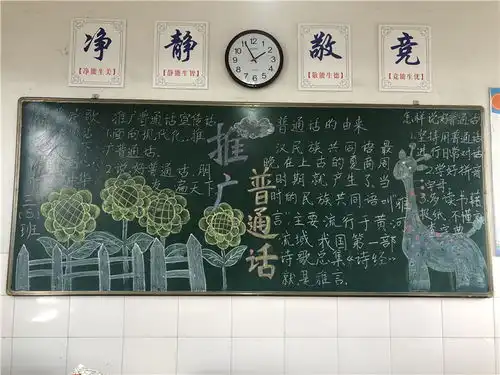 净
【净能生美】
静
【静能生智】
敬
【敬能生德】
竞
【竞能生优】
推广普通话宣传
1.面向现代化,推
广普通话.
2.说好普通话,朋
友遍天下
三(5)
班
推广
普通话
普通话的由来
汉民族共同语最
晚在上古的夏商周
时期就产生了,当
时的民族共同语叫“雅
言”主要流行于黄河
流域,我国第一部
诗歌总集《诗经》
就是雅言.
怎样说好普通话
1.坚持用普通话
进行日常对话
2.学好拼
3.多读书
报纸,不懂